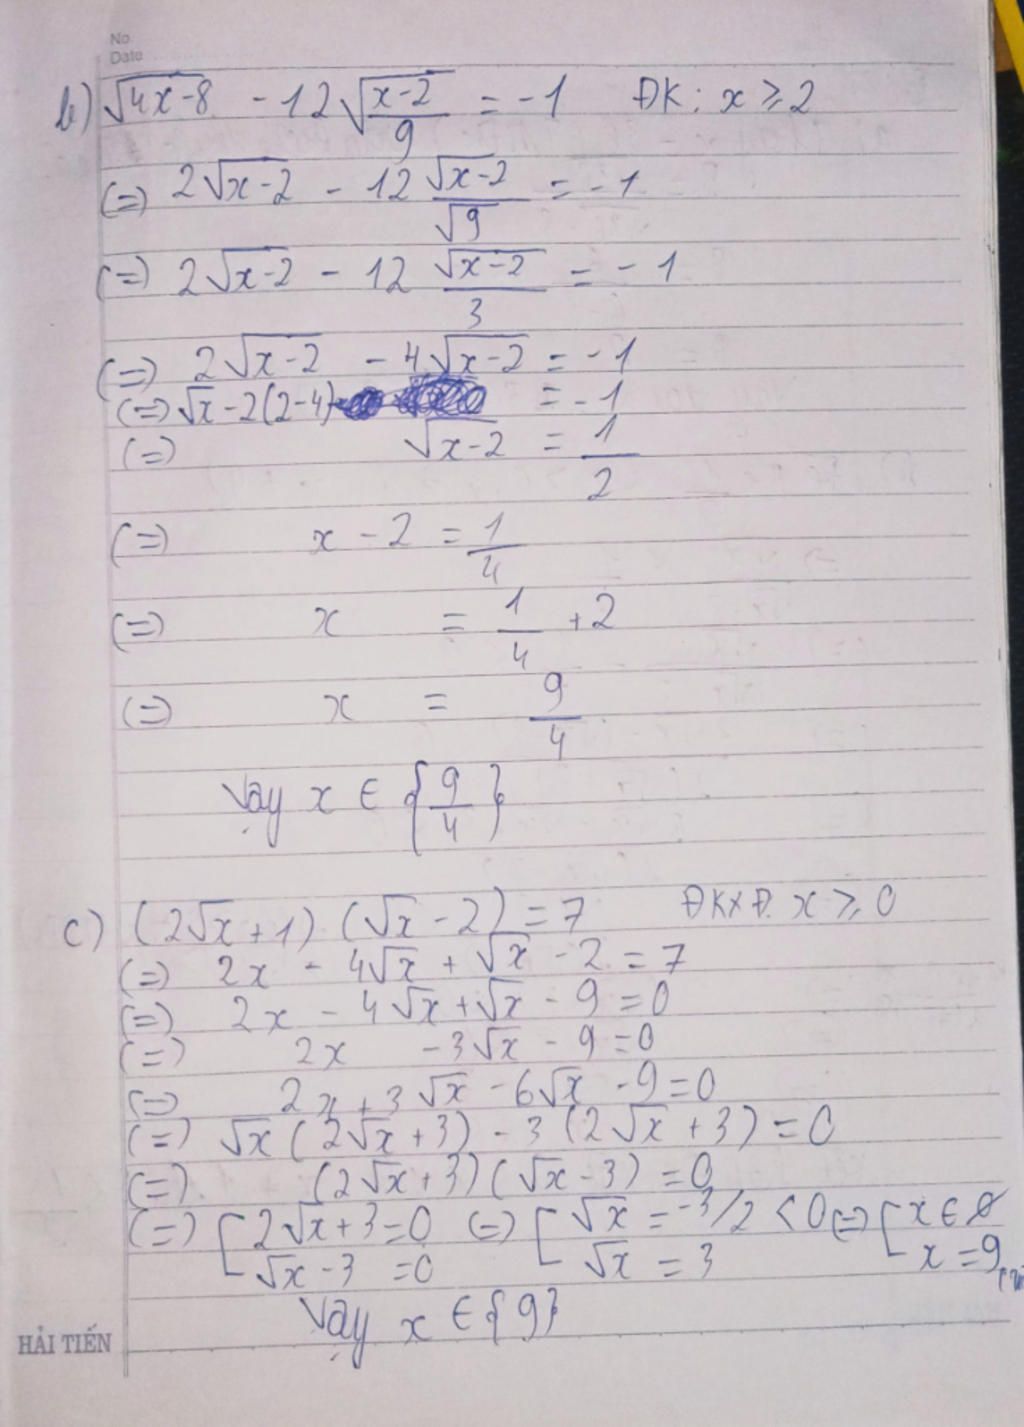 No
Date
b) √(4x-8) - 12√((x-2)/9) = -1 ĐK: x ⩾ 2
(=) 2√(x-2) - 12 √(x-2)/√9 = -1
(=) 2√(x-2) - 12 √(x-2)/3 = -1
(=) 2√(x-2) - 4√(x-2) = -1
(=) √x-2(2-4) = -1
(=) √(x-2) = 1/2
(=) x - 2 = 1/4
(=) x = 1/4 + 2
(=) x = 9/4
Vậy x ∈ {9/4}
c) (2√x + 1) (√x - 2) = 7 ĐKXĐ. x ⩾ 0
(=) 2x - 4√x + √x - 2 = 7
(=) 2x - 4√x + √x - 9 = 0
(=) 2x - 3√x - 9 = 0
(=) 2x + 3√x - 6√x - 9 = 0
(=) √x (2√x + 3) - 3 (2√x + 3) = 0
(=) (2√x + 3) (√x - 3) = 0
(=) [ 2√x + 3 = 0 (=) [ √x = -3/2 < 0 (=) [ x ∈ ∅
√x - 3 = 0 √x = 3 x = 9
Vậy x ∈ {9}
HẢI TIẾN